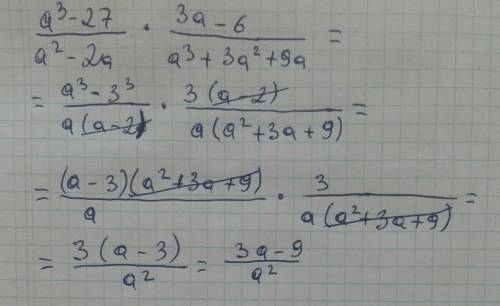 (a³-27)/(a²-2a) · (3a-6)/(a³+3a²+9a) =
= (a³-3³)/(a(a-2)) · (3(a-2))/(a(a²+3a+9)) =
= ((a-3)(a²+3a+9))/a · 3/(a(a²+3a+9)) =
= (3(a-3))/a² = (3a-9)/a²